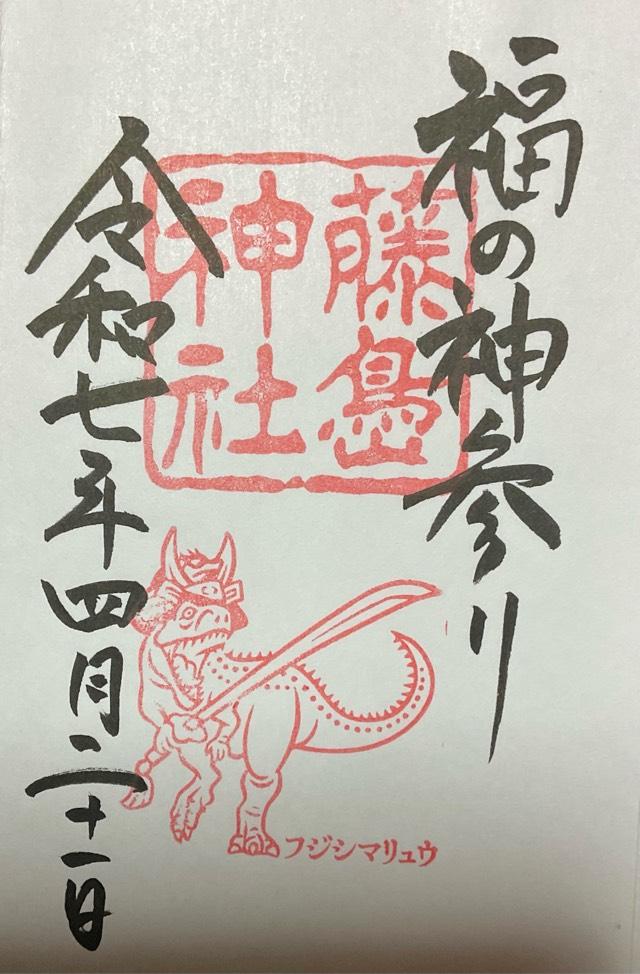 福の神参り
藤島
神社
令和七年四月二十一日
フジシマリュウ